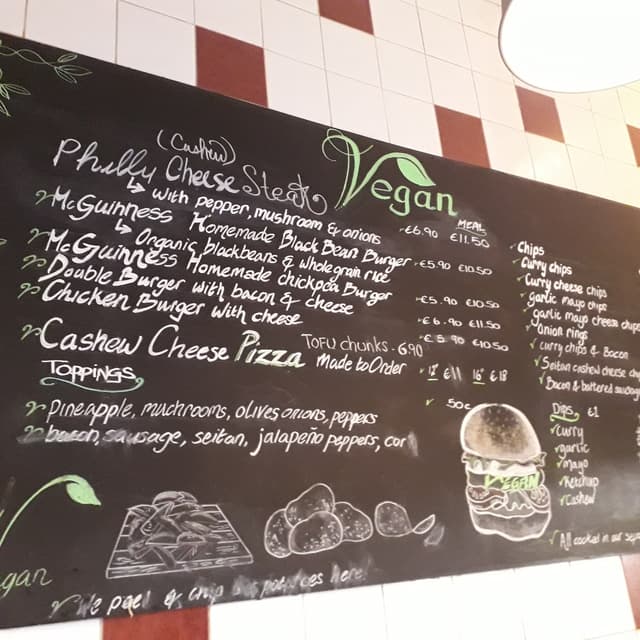 Vegan
(Cashew)
Philly Cheese Steak
↳ with pepper, mushroom & onions
MEAL
€6.90 €11.50
McGuinness Homemade Black Bean Burger
↳ Organic blackbeans & whole grain rice
€5.90 €10.50
McGuinness Homemade chickpea Burger
€5.90 €10.50
Double Burger with bacon & cheese
€6.90 €11.50
Chicken Burger with cheese
€5.90 €10.50
TOFU chunks - 6.90
Cashew Cheese Pizza Made to Order
12" €11 16" €18
TOPPINGS
50c
Pineapple, muchrooms, olives onions, peppers
bacon, sausage, seitan, jalapeño peppers, cor
Chips
Curry chips
Curry cheese chips
garlic mayo chips
garlic mayo cheese chips
Onion rings
curry chips & Bacon
Seitan cashew cheese ch
Bacon & battered sausage
Dips €1
curry
garlic
mayo
Ketchup
Cashew
VEGAN
All cooked in our sep
gan
We peel & chip potatoes here!